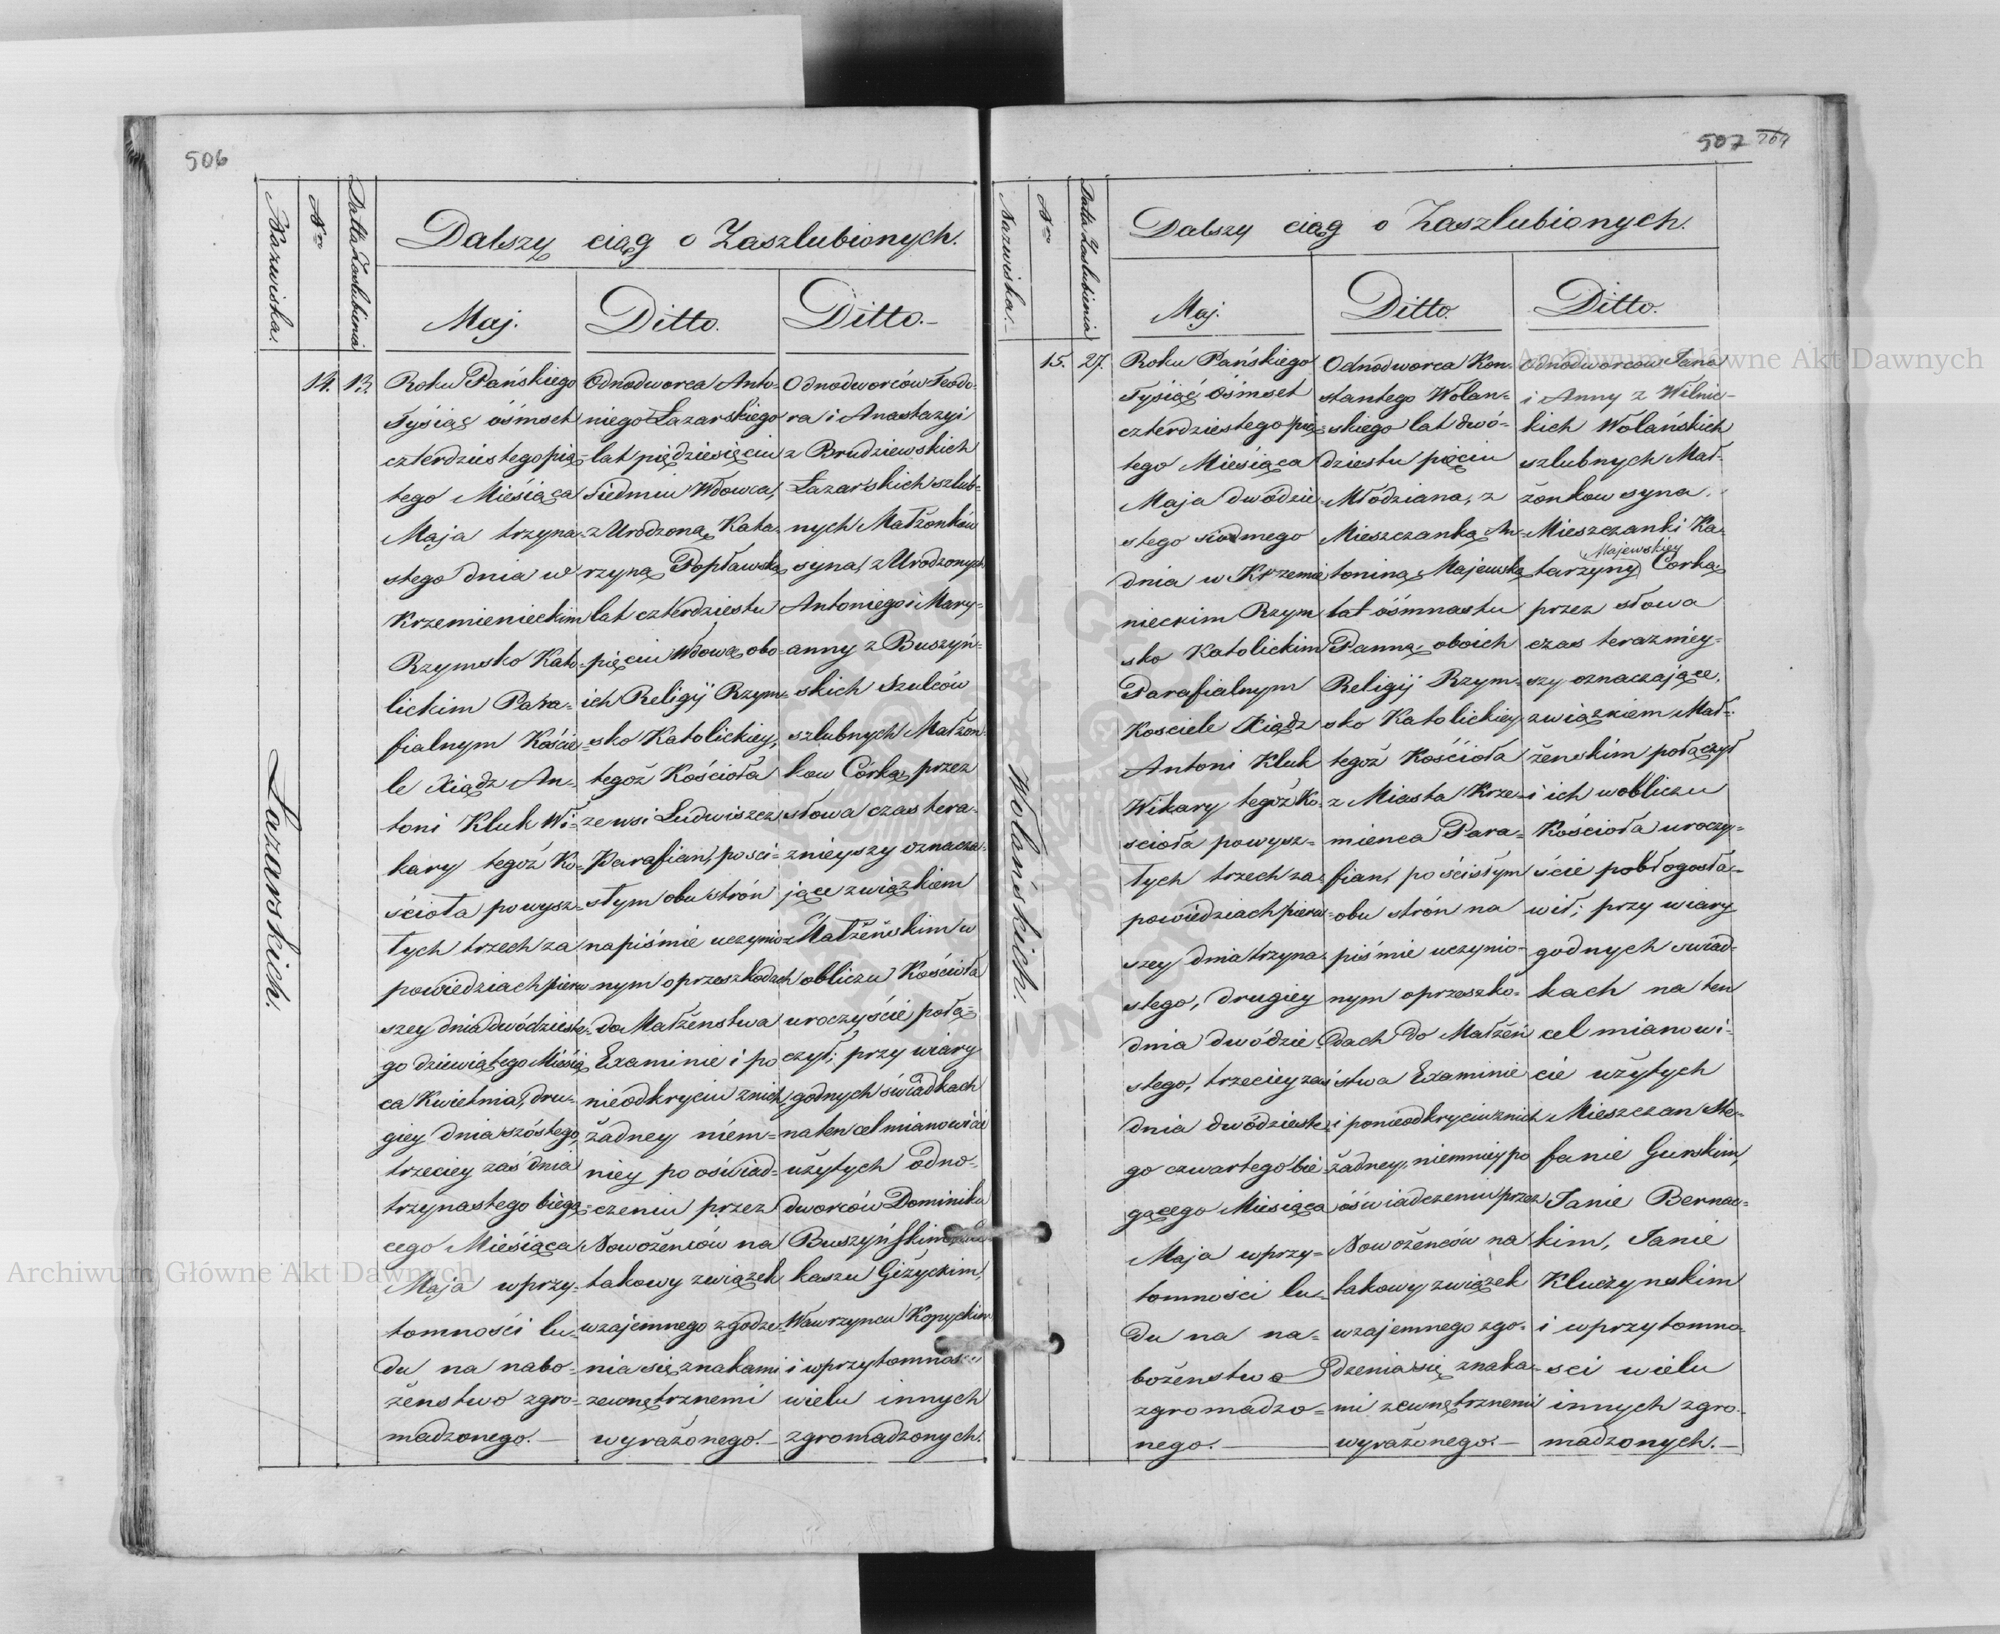 506
Nazwiska.
Nro
Datta Zaslubienia
Dalszy ciąg o Zaszlubionych.
Maj.
Ditto.
Ditto.
14.
13.
Łazarskich.
Roku Pańskiego
Tysiąc óśmset
czterdziestego pią-
tego Miesiąca
Maja trzyna-
stego dnia w
Krzemienieckim
Rzymsko Kato-
lickim Para-
fialnym Koście-
le Xiądz An-
toni Kluk Wi-
kary tegoż Ko-
ścioła powysz-
łych trzech za
powiedziach pierw
szey dnia dwódzieste-
go dziewiątego Miesią
ca Kwietnia, dru-
giey dnia szóstego,
trzeciey zaś dnia
trzynastego bieżą-
cego Miesiąca
Maja wprzy-
tomności lu-
du na nabo-
żenstwo zgro-
madzonego.
Odnodworca Anto-
niego Łazarskiego
lat pięździesięciu
siedmiu Wdowca,
z Urodzoną Kata-
rzyną Popławską
lat czterdziestu
pięciu Wdową obo-
ich Religij Rzym-
sko Katolickiey,
tegoż Kościoła
ze wsi Ludwiszcz
Parafian, po sci-
słym obu strón
na piśmie uczynio-
nym o przeszkodach
do Małżenstwa
Examinie i po
nieodkryciu znich
żadney niem-
niey po oświad-
czeniu przez
Nowożeńców na
takowy związek
wzajemnego zgodze-
nia się znakami
zewnętrznemi
wyrażonego.
Odnodworców Teodo-
ra i Anastazyi
z Brudziewskich
Łazarskich szlub-
nych Małżonków
syna, z Urodzonych
Antoniego i Mary-
anny z Buszyń-
skich Szulców
szlubnych Małżon-
kow Córką, przez
słowa czas tera-
znieyszy oznacza-
jące związkiem
Małżeńskim w
obliczu Kościoła
uroczyście połą-
czył; przy wiary
godnych świadkach
na ten cel mianowicie
użytych Odno-
dworców Dominiku
Buszyńskim,
kaszu Giżyckim,
Wawrzyncu Kopyckim
i wprzytomności
wielu innych
zgromadzonych.
507
Nazwiska.
Nro
Datta Zaslubienia
Dalszy ciąg o Zaszlubionych.
Maj.
Ditto.
Ditto.
15.
27.
Wolańskich.
Roku Pańskiego
Tysiąc óśmset
czterdziestego pią-
tego Miesiąca
Maja dwódzie-
stego siódmego
dnia w Krzemie
nieckim Rzym
sko Katolickim
Parafialnym
Kosciele Xiądz
Antoni Kluk
Wikary tegoż Ko-
scioła powysz-
łych trzech za-
powiedziach pierw-
szey dnia trzyna-
stego, drugiey
dnia dwódzie-
stego, trzeciey zaś
dnia dwódzieste-
go czwartego bie
gącego Miesiąca
Maja wprzy-
tomności lu-
du na na-
bożenstwo
zgromadzo-
nego.
Odnodworca Kon-
stantego Wolan-
skiego lat dwó-
dziestu pięciu
Młodziana, z
Mieszczanką An-
toniną Majewską
lat óśmnastu
Panną, oboich
Religij Rzym-
sko Katolickiey
tegoż Kościoła
z Miasta Krze-
mienca Para-
fian, po ścisłym
obu strón na
piśmie uczynio-
nym o przeszko-
dach do Małżeń
stwa Examinie
i po nieodkryciu znich
żadney, niemniey po
oświadczeniu przez
Nowożeńców na
takowy związek
wzajemnego zgo-
dzenia się znaka-
mi zewnętrznemi
wyrażonego.
Odnodworców Jana
i Anny z Wilnic-
kich Wolańskich
szlubnych Mał-
żonkow syna,
Mieszczanki Ka-
Majewskiey
tarzyny Corką
przez słowa
czas teraz niey-
szy oznaczające,
związkiem Mał-
żenskim połączył
i ich wobliczu
Kościoła uroczy-
ście pobłogosła-
wił; przy wiary
godnych swiad-
kach na ten
cel mianowi-
cie użytych
Mieszczan Ste-
fanie Gurskim,
Janie Bernac-
kim, Janie
Kluczynskim
i wprzytomno-
sci wielu
innych zgro-
madzonych.
Archiwum Główne Akt Dawnych
Archiwum Główne Akt Dawnych